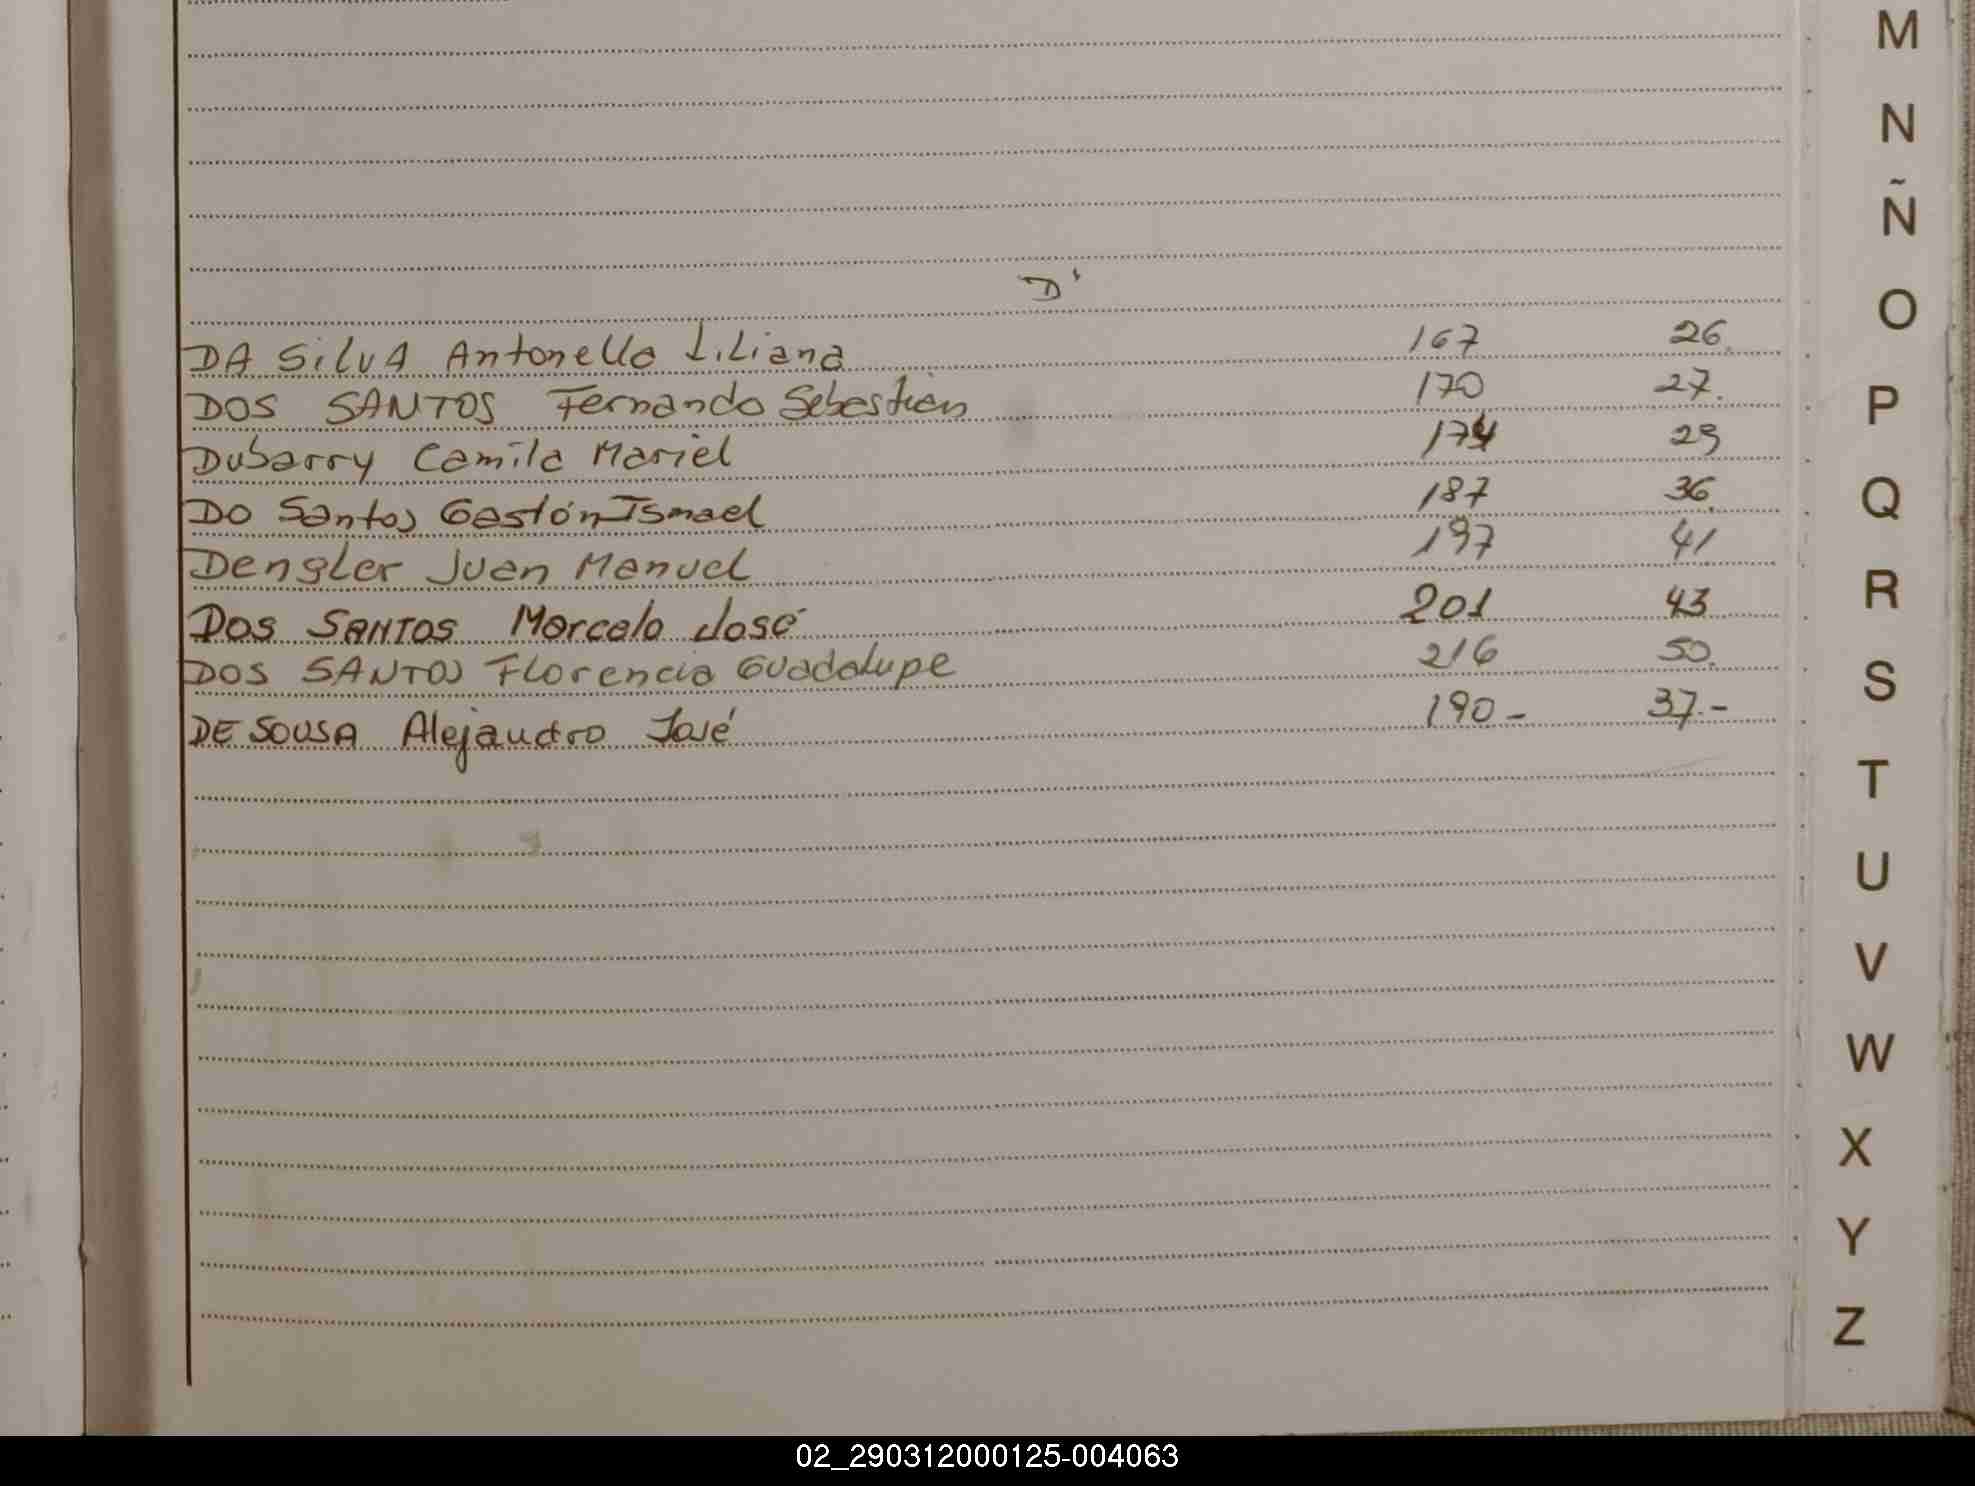 D'
DA SilVA Antonella Liliana 167 26.
DOS SANTOS Fernando Sebastian 170 27.
Dubarry Camila Mariel 174 29
Do Santos Gastón Ismael 187 36.
Dengler Juan Manuel 197 41
Dos SANTOS Marcelo José 201 43
DOS SANTOS Florencia Guadalupe 216 50.
DE SOUSA Alejandro José 190- 37.-
M
N
Ñ
O
P
Q
R
S
T
U
V
W
X
Y
Z
02_290312000125-004063